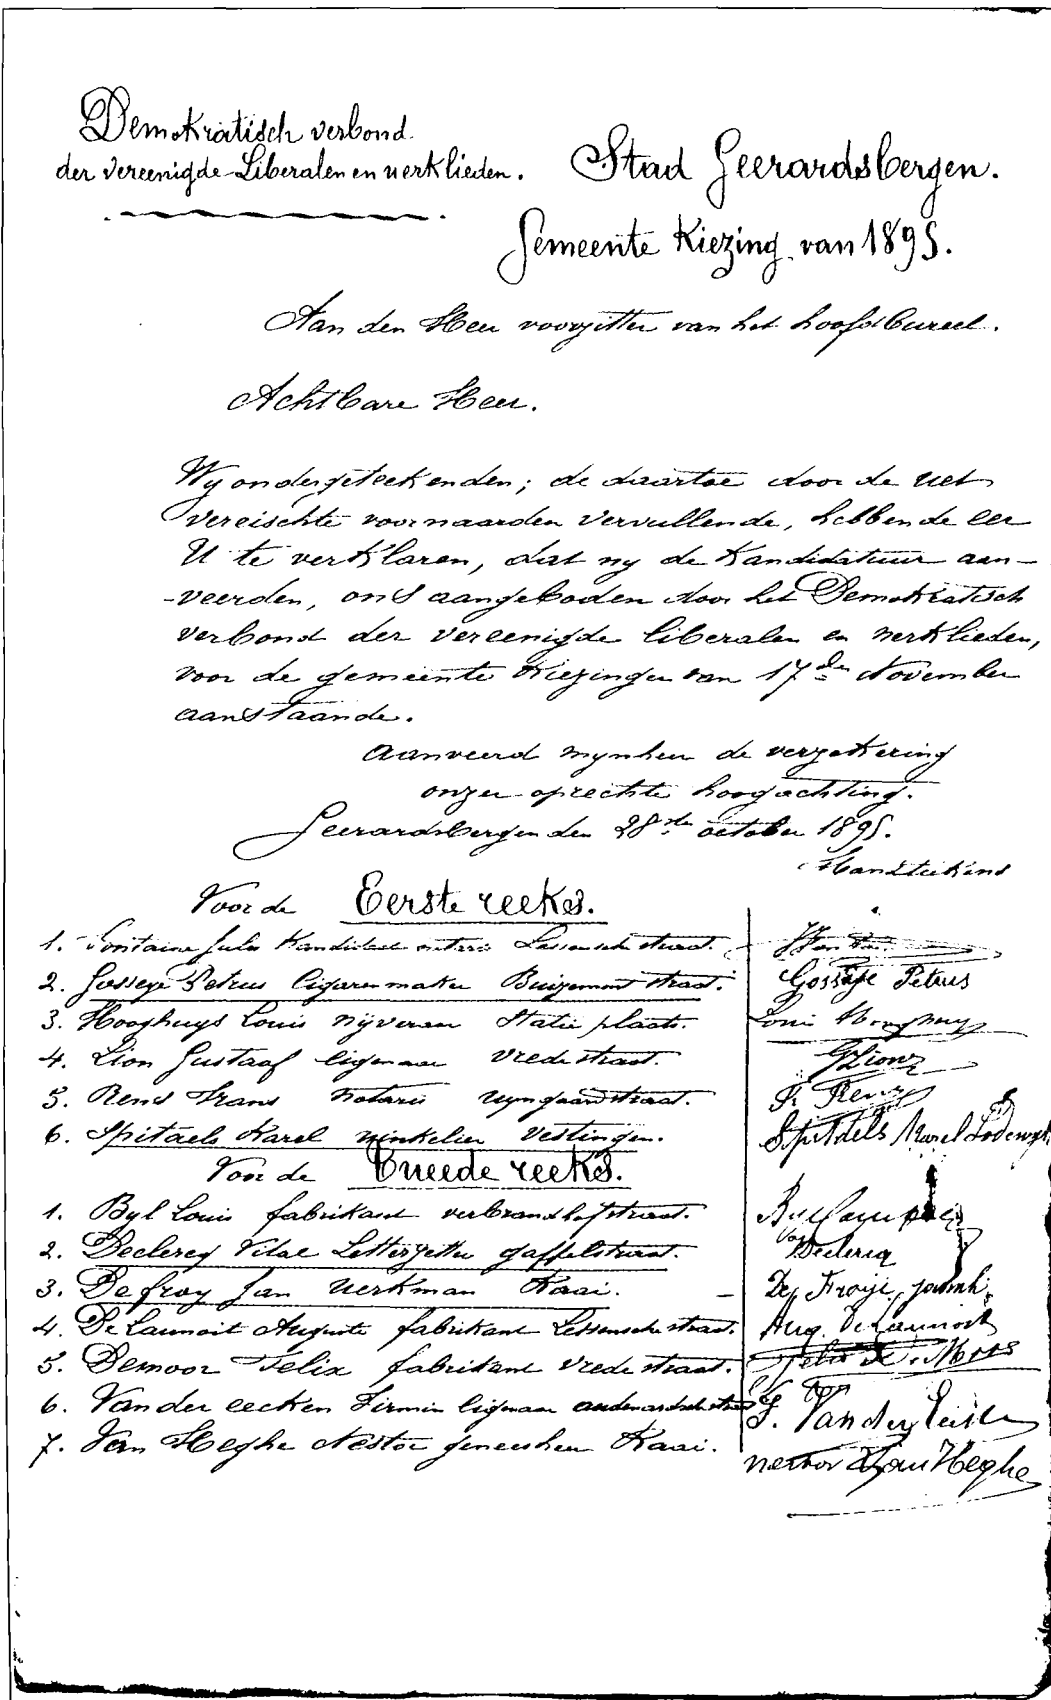 Demokratisch verbond
der vereenigde Liberalen en werklieden.
Stad Geerardsbergen.
Gemeente Kiezing van 1895.
Aan den Heer voorzitter van het hoofdbureel.
Achtbare Heer.
Wy ondergeteekenden; de daartoe door de wet
vereischte voorwaarden vervullende, hebben de eer
U te verklaren, dat wy de Kandidatuur aan-
-veerden, ons aangeboden door het Demokratisch
verbond der vereenigde liberalen en werklieden,
voor de gemeente Kiezingen van 17den November
aanstaande.
Aanveerd mynheer de verzekering
onzer oprechte hoogachting.
Geerardsbergen den 28ste october 1895.
Handteekens
Voor de Eerste reeks.
1. Fontaine Jules Kandidaat notaris Lessensche straat.
2. Gosseye Petrus Cigarenmaker Buizemont straat. Gosseye Petrus
3. Hooghuys Louis nyveraar Statie plaats. Louis Hooghuys
4. Lion Gustaaf eigenaar vrede straat. G Lion
5. Rens Frans notaris wyngaardstraat. Fr Rens
6. Spitaels Karel winkelier Vestingen. Spitaels Karel Lodewyk
Voor de Tweede reeks.
1. Byl Louis fabrikant verbrandhofstraat.
2. Declercq Vital Letterzetter gaffelstraat. Declercq
3. De froy Jan werkman Kaai. De Froije, Jan
4. De Launoit Auguste fabrikant Lessensche straat. Aug. De Launoit
5. Demoor Felix fabrikant vrede straat. Felix De Moor
6. Van der eecken Firmin eigenaar audenaardsche straat F. Van der Eecken
7. Van Heghe Nestor geneesheer Kaai. Nestor Van Heghe